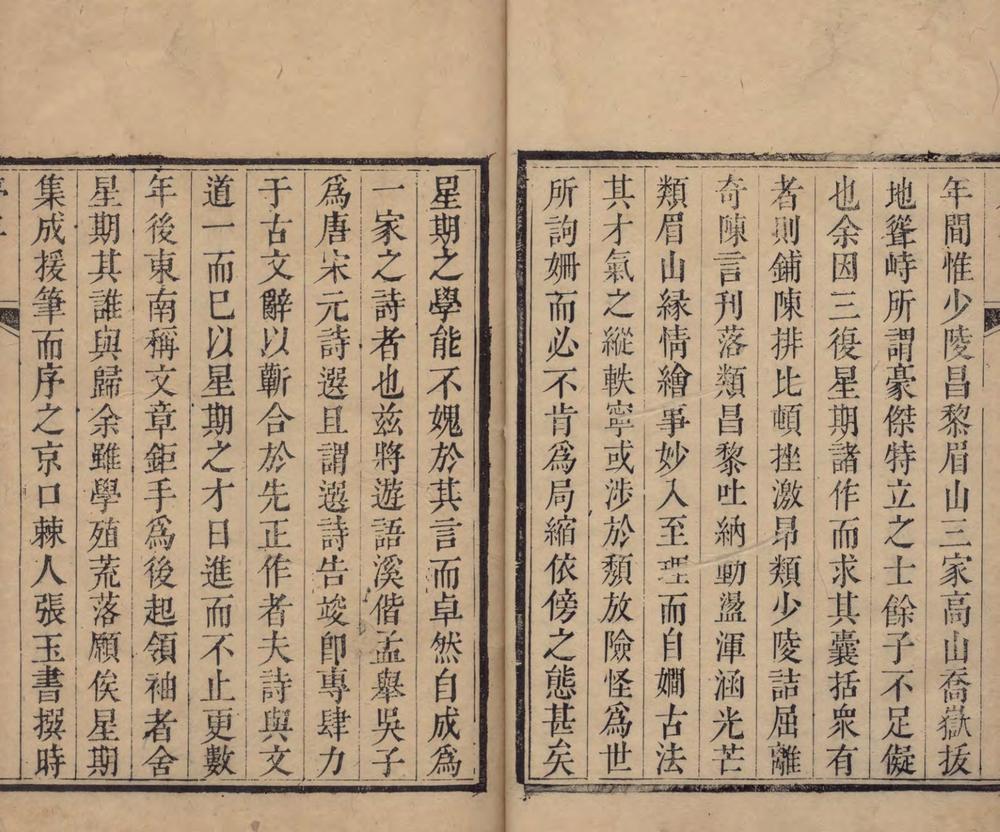 年間惟少陵昌黎眉山三家高山喬嶽拔
地聳峙所謂豪傑特立之士餘子不足儗
也余因三復星期諸作而求其囊括衆有
者則鋪陳排比頓挫激昂類少陵詰屈離
奇陳言刊落類昌黎吐納動盪渾涵光芒
類眉山緣情繪事妙入至理而自嫺古法
其才氣之縱軼寧或涉於頽放險怪爲世
所詢姍而必不肯爲局縮依傍之態甚矣
星期之學能不媿於其言而卓然自成爲
一家之詩者也茲將遊語溪偕孟舉吳子
爲唐宋元詩選且謂選詩告竣卽專肆力
于古文辭以蘄合於先正作者夫詩與文
道一而已以星期之才日進而不止更數
年後東南稱文章鉅手爲後起領袖者舍
星期其誰與歸余雖學殖荒落願俟星期
集成援筆而序之京口棘人張玉書撰時